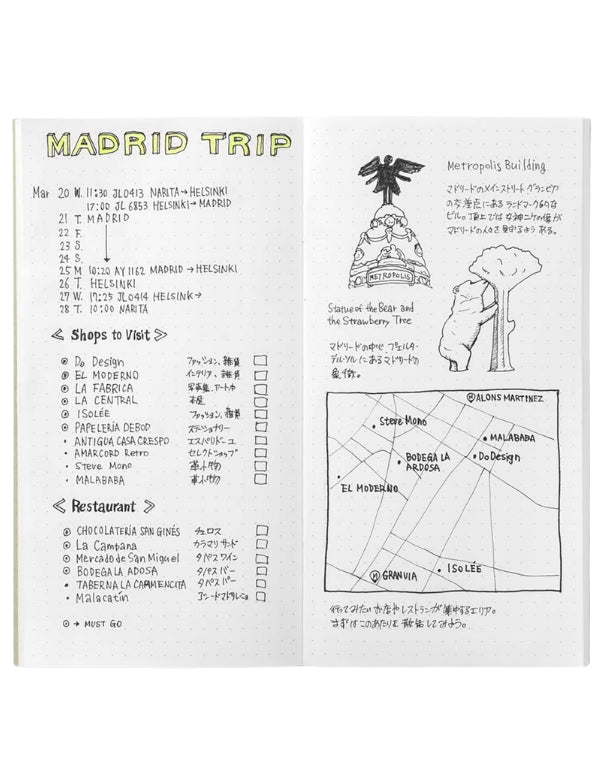 MADRID TRIP
Mar 20 W. 11:30 JL0413 NARITA→HELSINKI
17:00 JL 6853 HELSINKI→MADRID
21 T. MADRID
22 F.
23 S.
24 S.
25 M 10:20 AY 1162 MADRID→HELSINKI
26 T. HELSINKI
27 W. 17:25 JL0414 HELSINK→
28 T. 10:00 NARITA
≪ Shops to Visit ≫
⦿ Do Design ファッション、雑貨
⦿ EL MODERNO インテリア、雑貨
⦿ LA FABRICA 写真集、アート本
⦿ LA CENTRAL 本屋
⦿ ISOLÉE ファッション、雑貨
⦿ PAPELERÍA DEBOD ステーショナリー
• ANTIGUA CASA CRESPO エスパドリーユ
• AMARCORD Retro セレクトショップ
• Steve Mono 革小物
• MALABABA 革小物
≪ Restaurant ≫
⦿ CHOCOLATERÍA SAN GINÉS チュロス
⦿ La Campana カラマリサンド
⦿ Mercado de San Miguel タパスワイン
⦿ BODEGA LA ADOSA タパスバー
• TABERNA LA CARMENCITA タパスバー
• Malacatín
⦿ → MUST GO
Metropolis Building
マドリードのメインストリート グランビア
の交差点にあるランドマーク的な
ビル。頂上では女神ニケの像が
マドリードの人々を見守るよう ある。
METROPOLIS
Statue of the Bear and
the Strawberry Tree
マドリードの中心、プエルタ・
デル・ソルにあるマドリードの
象徴。
Ⓜ ALONS MARTINEZ
Steve Mono
MALABABA
BODEGA LA
ARDOSA
Do Design
EL MODERNO
Ⓜ GRANVIA
ISOLÉE
行ってみたいお店やレストランが集中するエリア。
まずはこのあたりを散策してみよう。